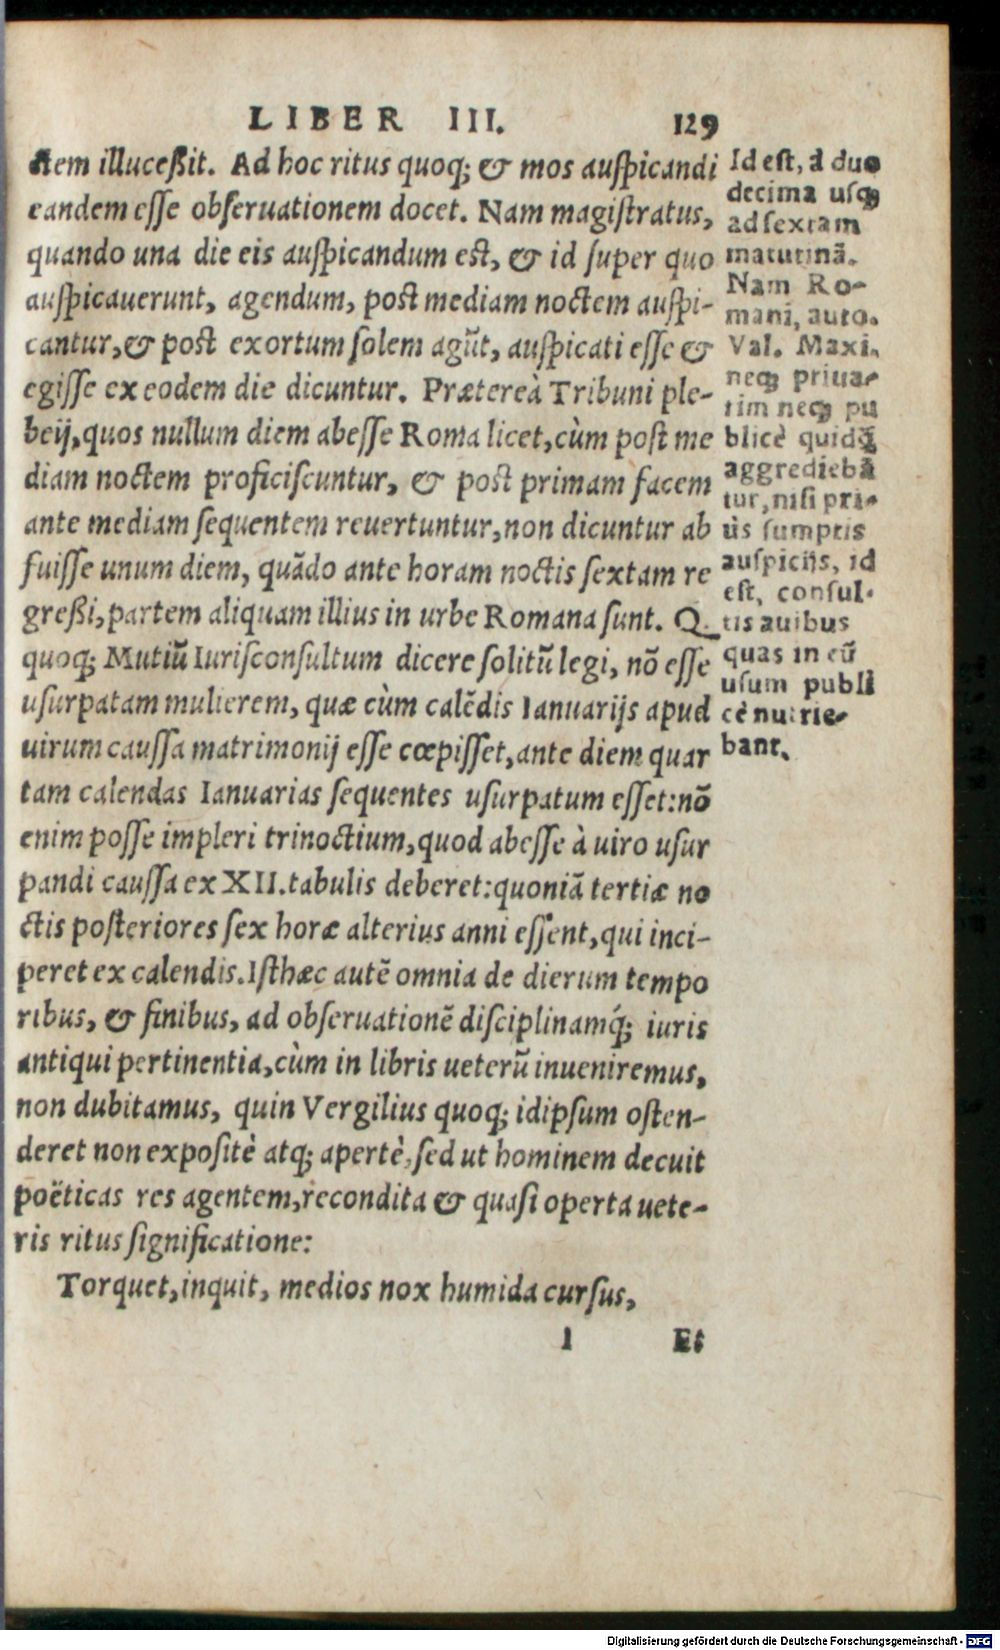 LIBER III. 129
ctem illuceßit. Ad hoc ritus quoq; & mos auſpicandi
eandem eſſe obſeruationem docet. Nam magiſtratus,
quando una die eis auſpicandum eſt, & id ſuper quo
auſpicauerunt, agendum, poſt mediam noctem auſpi-
cantur, & poſt exortum ſolem agūt, auſpicati eſſe &
egiſſe ex eodem die dicuntur. Prætereà Tribuni ple-
beij, quos nullum diem abeſſe Roma licet, cùm poſt me
diam noctem proficiſcuntur, & poſt primam facem
ante mediam ſequentem reuertuntur, non dicuntur ab
fuiſſe unum diem, quādo ante horam noctis ſextam re
greßi, partem aliquam illius in urbe Romana ſunt. Q.
quoq; Mutiū Iuriſconſultum dicere ſolitū legi, nō eſſe
uſurpatam mulierem, quæ cùm calēdis Ianuarijs apud
uirum cauſſa matrimonij eſſe cœpiſſet, ante diem quar
tam calendas Ianuarias ſequentes uſurpatum eſſet: nō
enim poſſe impleri trinoctium, quod abeſſe à uiro uſur
pandi cauſſa ex XII. tabulis deberet: quoniā tertiæ no
ctis poſteriores ſex horæ alterius anni eſſent, qui inci-
peret ex calendis. Iſthæc autē omnia de dierum tempo
ribus, & finibus, ad obſeruationē diſciplinamq́; iuris
antiqui pertinentia, cùm in libris ueterū inueniremus,
non dubitamus, quin Vergilius quoq; idipſum oſten-
deret non expoſitè atq; apertè, ſed ut hominem decuit
poëticas res agentem, recondita & quaſi operta uete-
ris ritus ſignificatione:
Torquet, inquit, medios nox humida curſus,
l Et
Id eſt, à duo
decima uſq;
ad ſextam
matutinā.
Nam Ro-
mani, auto.
Val. Maxi.
neq; priua-
tim neq; pu
blicè quidq̄
aggrediebā
tur, niſi pri-
ùs ſumptis
auſpicijs, id
eſt, conſul-
tis auibus
quas in eū
uſum publi
cè nutrie-
bant.
Digitalisierung gefördert durch die Deutsche Forschungsgemeinschaft - DFG